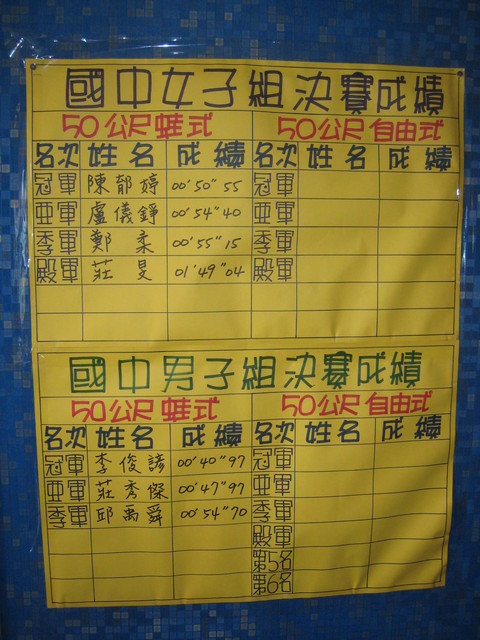 國中女子組決賽成績
50公尺蛙式 50公尺自由式
名次 姓名 成績 名次 姓名 成績
冠軍 陳郁婷 00'50"55 冠軍
亞軍 盧儀錚 00'54"40 亞軍
季軍 鄭柔 00'55"15 季軍
殿軍 莊旻 01'49"04 殿軍
國中男子組決賽成績
50公尺蛙式 50公尺自由式
名次 姓名 成績 名次 姓名 成績
冠軍 李俊諺 00'40"97 冠軍
亞軍 莊秀傑 00'47"97 亞軍
季軍 邱禹舜 00'54"70 季軍
殿軍
第5名
第6名